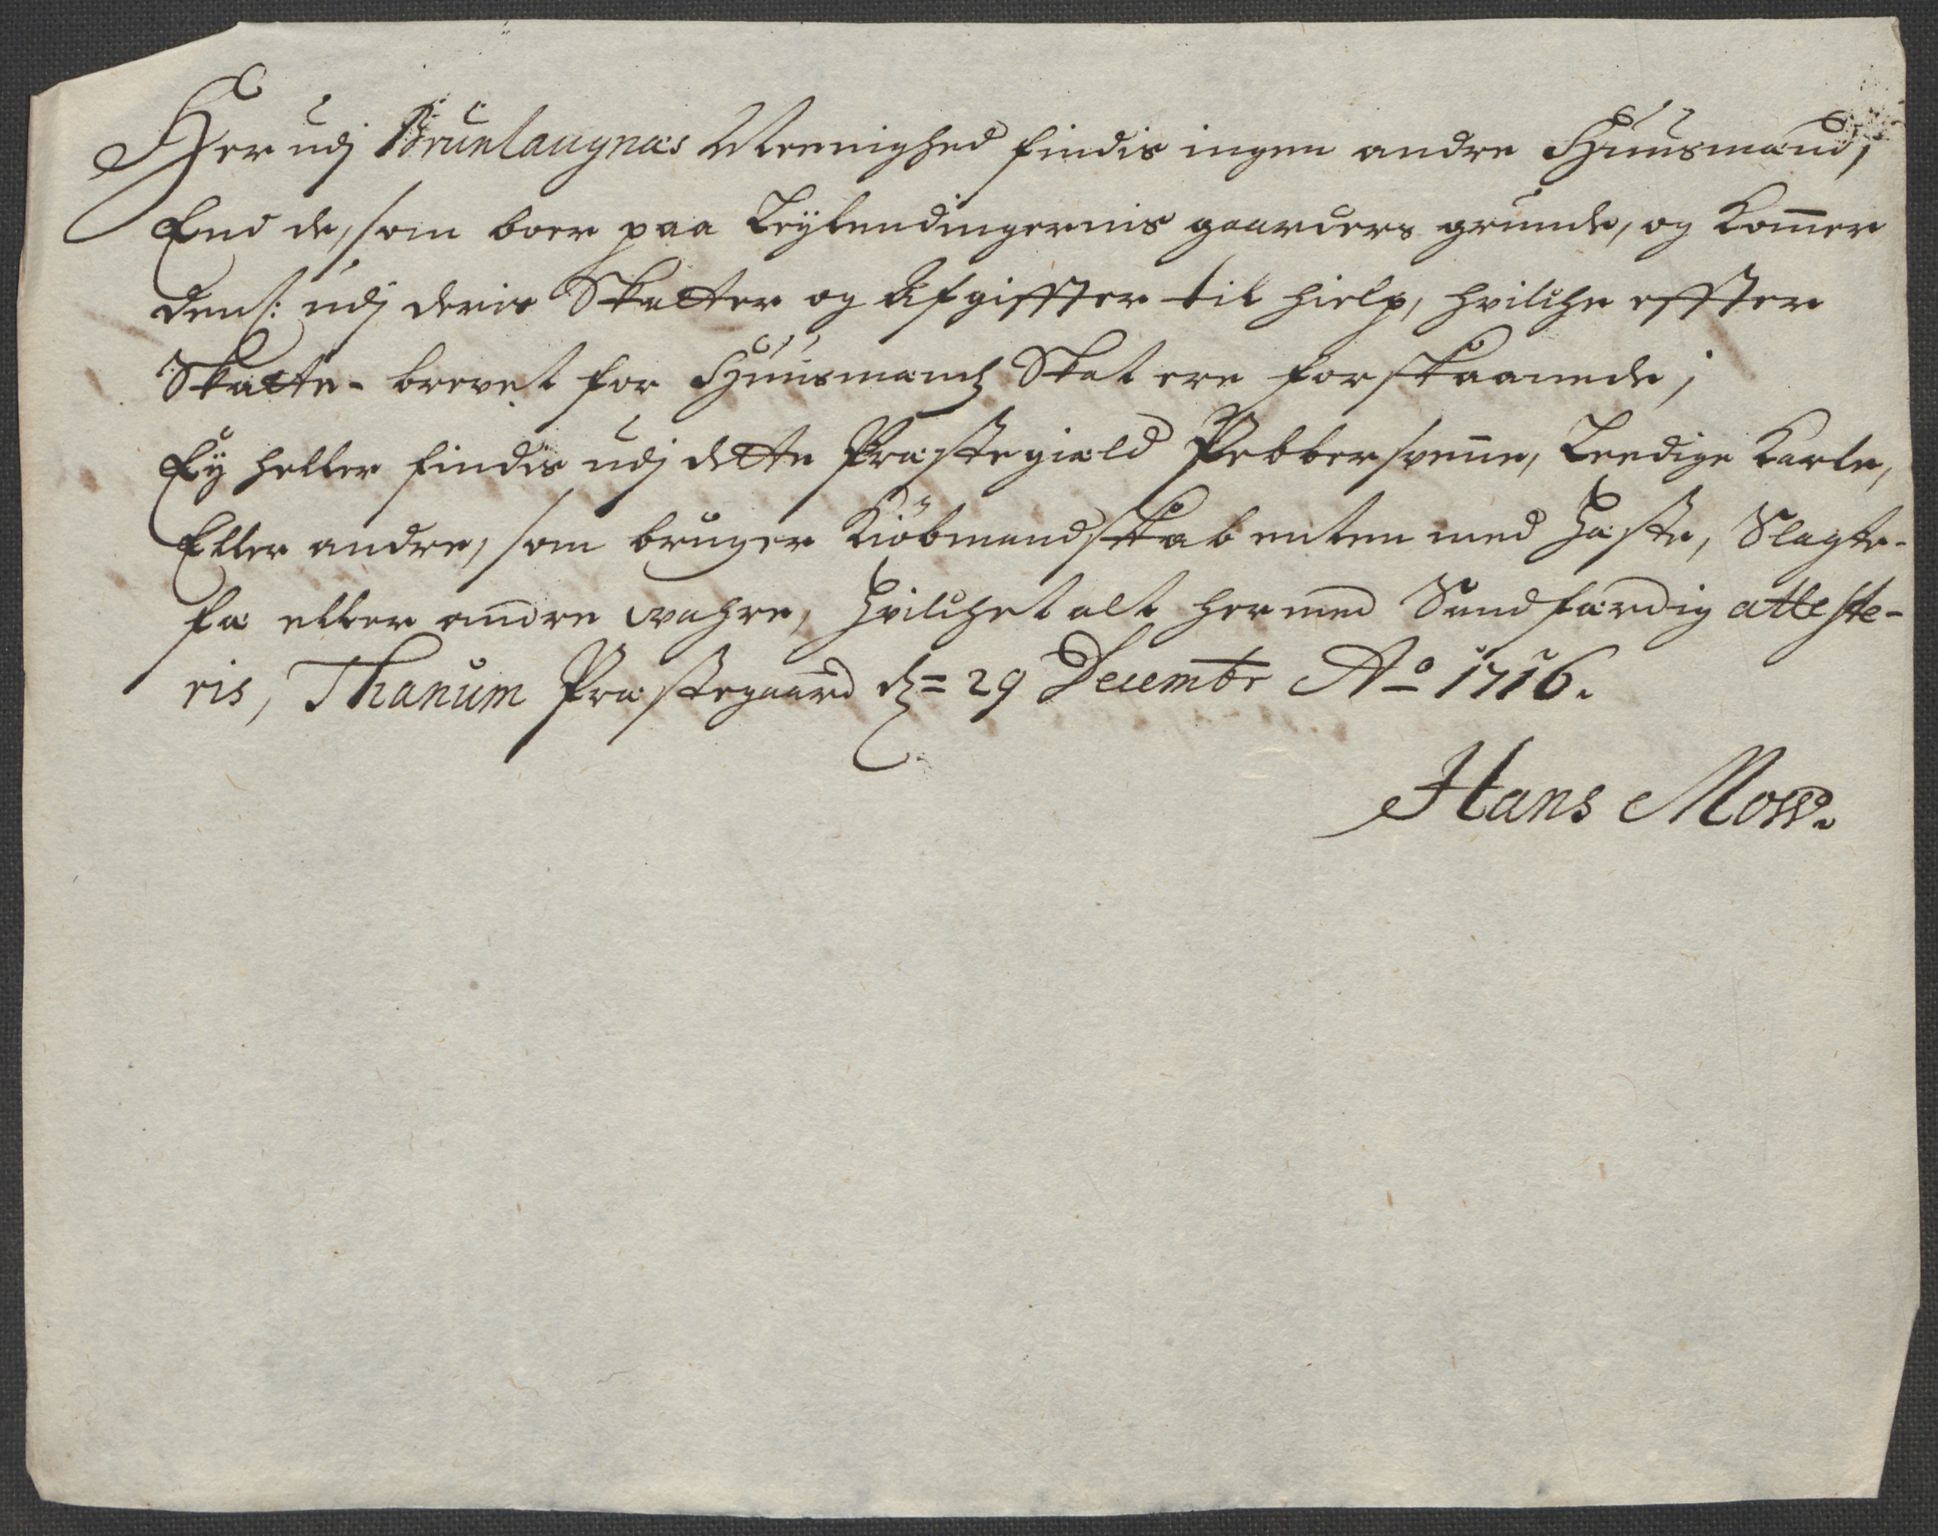 Her udj Brunlaugnæs Meenighed findis ingen andre Huusmænd,
End de, som boer paa Leylendingernis gaarders grunde, og komer
dem/: udj deris Skatter og Afgiffter til hielp, hvilche effter
Skatte-brevet for Huusmænds Skat ere forskaanede;
Ey heller findis udj dette Præstegield Pebbersvene, Leedige Karle,
Eller andre, som bruger Kiöbmandskab enten med Heste, Slagte-
fæ eller andre wahre, Hvilchet alt hermed Sandfærdig atteste-
ris, Thanum Præstegaard ds= 29 Decembr Ao 1716.
Hans Mow.